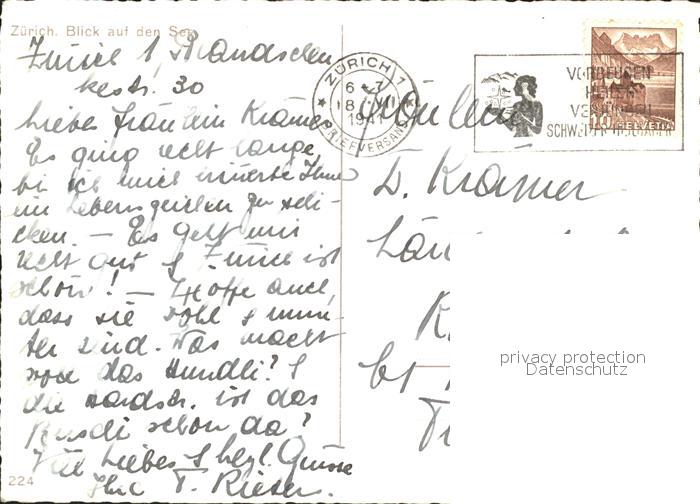 Zürich. Blick auf den See
Zürich 1, Brandschen-
kestr. 30
Liebes Fräulein Krämer
Es ging recht lange,
bis ich mich erinnerte Ihnen
ein Lebenszeichen zu schi-
cken. – Es geht mir
recht gut & Zürich ist
schön! – Hoffe auch,
dass sie wohl & mun-
ter sind. Was macht
wohl das Hundli? &
die ist das
Ruedi schon da?
Viel Liebes & herzl. Grüsse
Ihre T. Rieser.
224
ZÜRICH 1
1941
BRIEFVERSAND
VORBEUGEN
HEILEN
10 HELVETIA
Fräulein
D. Krämer
privacy protection
Datenschutz